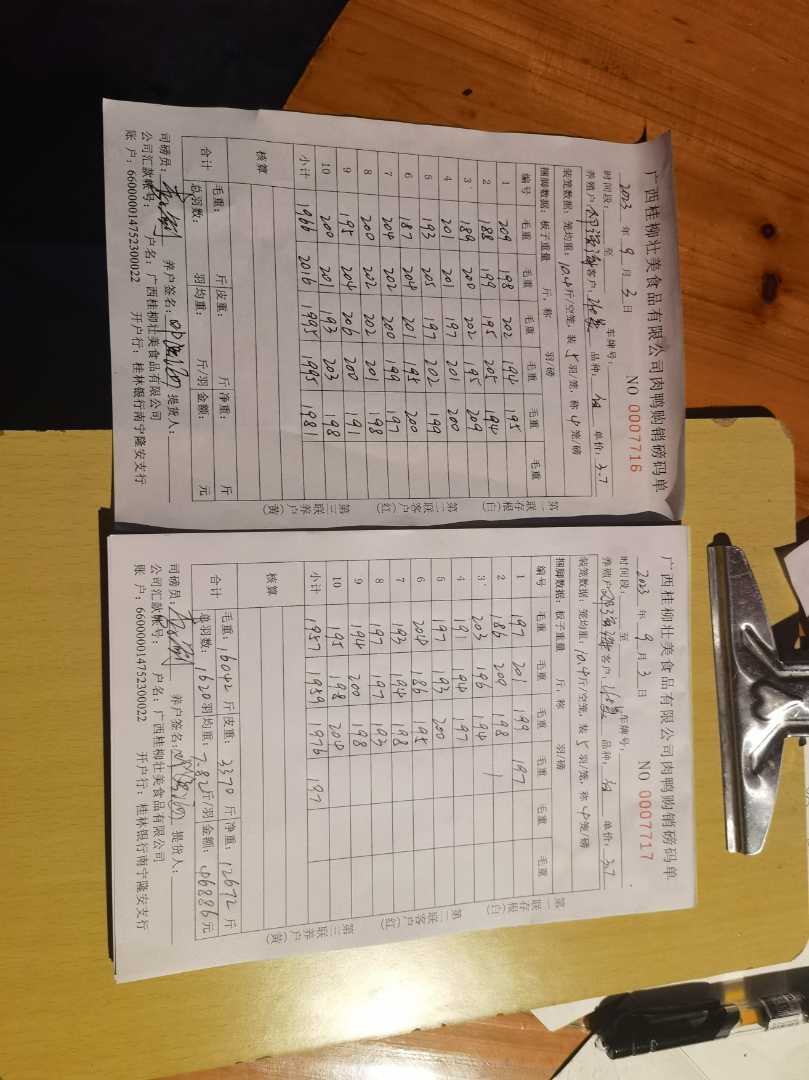 广西桂柳壮美食品有限公司肉鸭购销磅码单
2023 年 9 月 3 日 NO 0007716
时间段: 至 车牌号:
养殖户: 客户: 品种: 单价: 3.7
装笼数据: 笼均重: 10.4斤/空笼, 装 5 羽/笼, 称 4 笼/磅
捆脚数据: 板子重量 斤, 称 羽/磅
编号 毛重 毛重 毛重 毛重 毛重 毛重
1 209 198 202 194 195
2 188 199 195 205 194
3 189 200 202 195 209
4 201 201 197 201 200
5 193 205 197 202 199
6 187 204 201 195 200
7 204 202 200 199 197
8 200 202 202 201 198
9 195 204 206 200 191
10 200 201 193 203 198
小计 1966 2016 1995 1995 1981
核算
合计 毛重: 斤 皮重: 斤 净重: 斤
总羽数: 羽 均重: 斤/羽 金额: 元
司磅员: 养户签名: 提货人:
公司汇款帐号: 户名: 广西桂柳壮美食品有限公司
账 户: 660000014752300022 开户行: 桂林银行南宁隆安支行
第一联存根(白)
第二联客户(红)
第三联养户(黄)
广西桂柳壮美食品有限公司肉鸭购销磅码单
2023 年 9 月 3 日 NO 0007717
时间段: 至 车牌号:
养殖户: 客户: 品种: 单价: 3.7
装笼数据: 笼均重: 10.4斤/空笼, 装 5 羽/笼, 称 4 笼/磅
捆脚数据: 板子重量 斤, 称 羽/磅
编号 毛重 毛重 毛重 毛重 毛重 毛重
1 197 201 199 197
2 186 200 198 1
3 203 196 194
4 191 194 197
5 197 193 200
6 204 186 195
7 193 194 198
8 197 197 193
9 194 200 198
10 195 198 204
小计 1957 1959 1976 197
核算
合计 毛重: 16042 斤 皮重: 3370 斤 净重: 12672 斤
总羽数: 1620 羽 均重: 7.82 斤/羽 金额: 46886 元
司磅员: 养户签名: 提货人:
公司汇款帐号: 户名: 广西桂柳壮美食品有限公司
账 户: 660000014752300022 开户行: 桂林银行南宁隆安支行
第一联存根(白)
第二联客户(红)
第三联养户(黄)